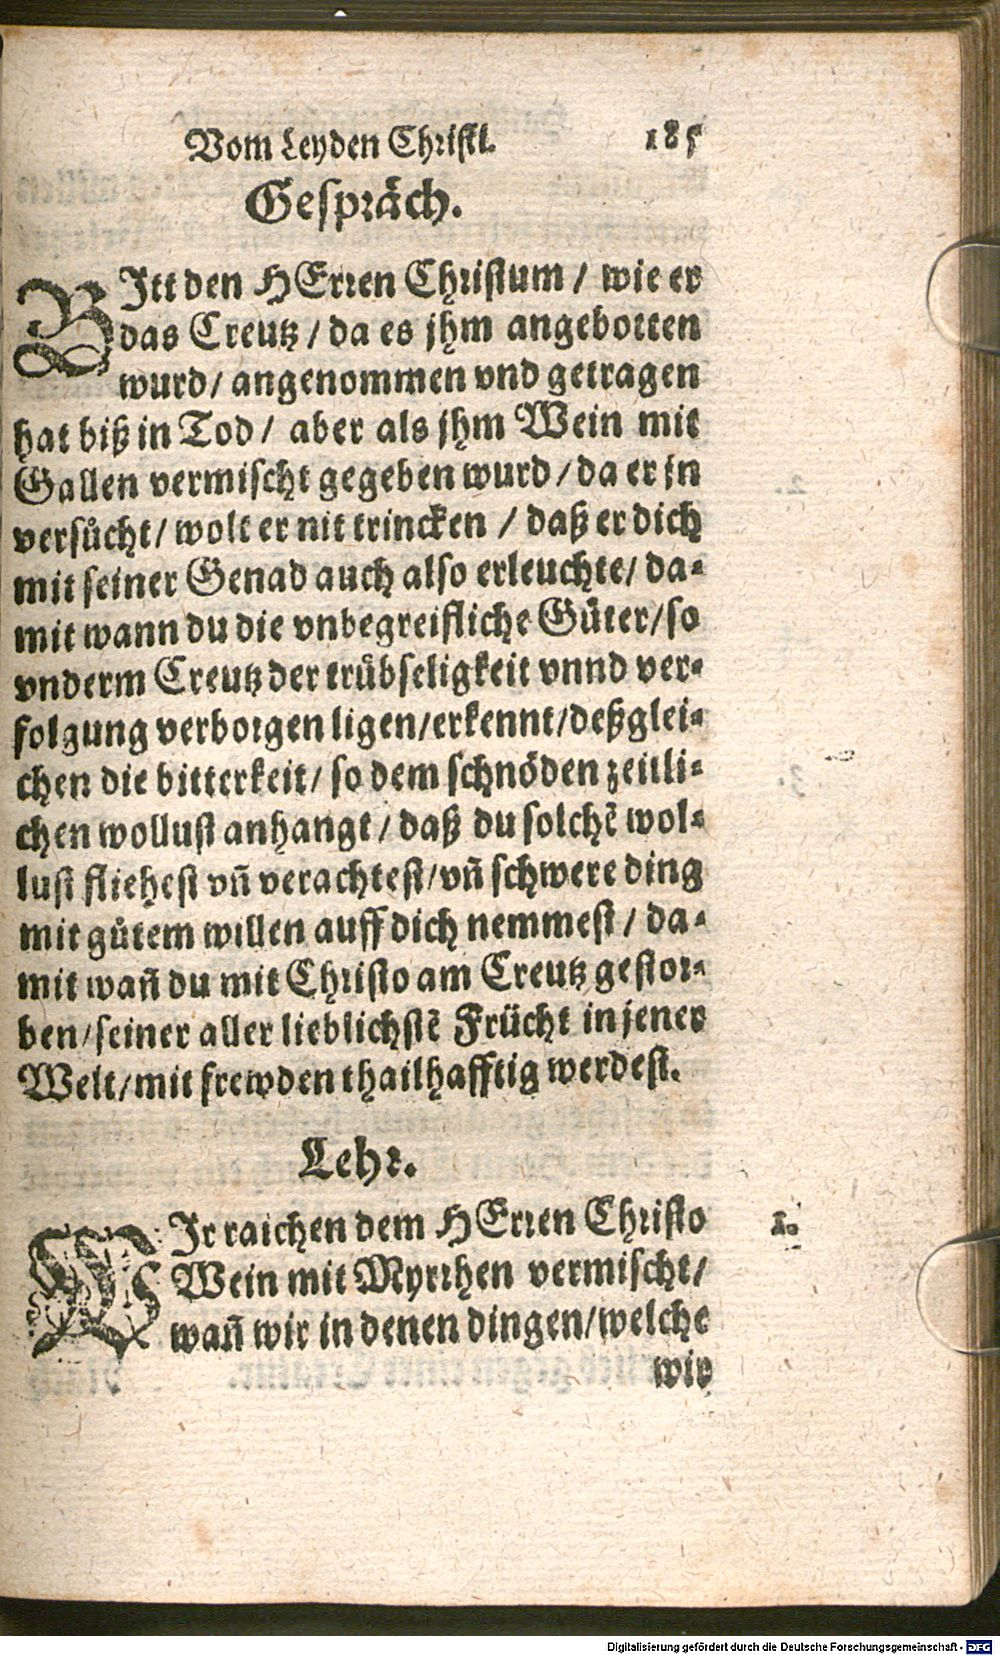 Vom Leyden Christi. 185
Gespräch.
BItt den HErren Christum / wie er
das Creutz / da es jhm angebotten
wurd / angenommen vnd getragen
hat biß in Tod / aber als jhm Wein mit
Gallen vermischt gegeben wurd / da er jn
versůcht / wolt er nit trincken / daß er dich
mit seiner Genad auch also erleuchte / da-
mit wann du die vnbegreifliche Gůter / so
vnderm Creutz der trůbseligkeit vnnd ver-
folgung verborgen ligen / erkennt / deßglei-
chen die bitterkeit / so dem schnöden zeitli-
chen wollust anhangt / daß du solchẽ wol-
lust fliehest vñ verachtest / vñ schwere ding
mit gůtem willen auff dich nemmest / da-
mit wañ du mit Christo am Creutz gestor-
ben / seiner aller lieblichstẽ Frücht in jener
Welt / mit frewden thailhafftig werdest.
Lehr.
WIr raichen dem HErren Christo 1.
Wein mit Myrrhen vermischt /
wañ wir in denen dingen / welche
wir
Digitalisierung gefördert durch die Deutsche Forschungsgemeinschaft - DFG